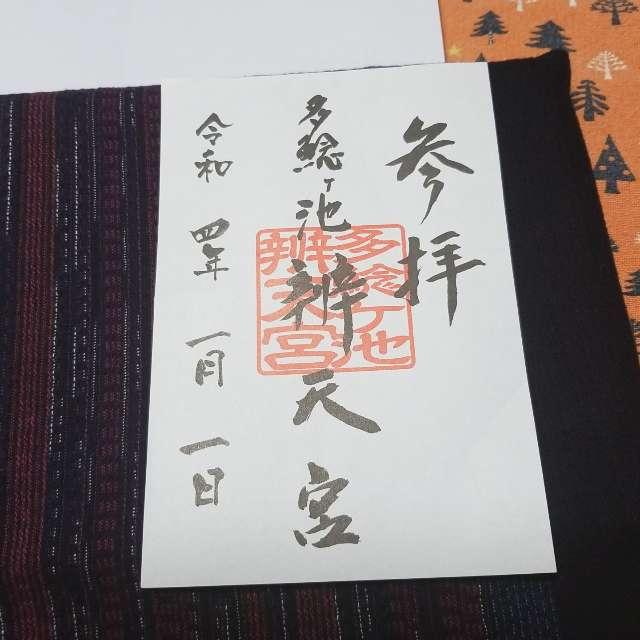 参拝
多鯰ヶ池辨天宮
令和四年一月一日
多鯰ヶ池
辨天宮